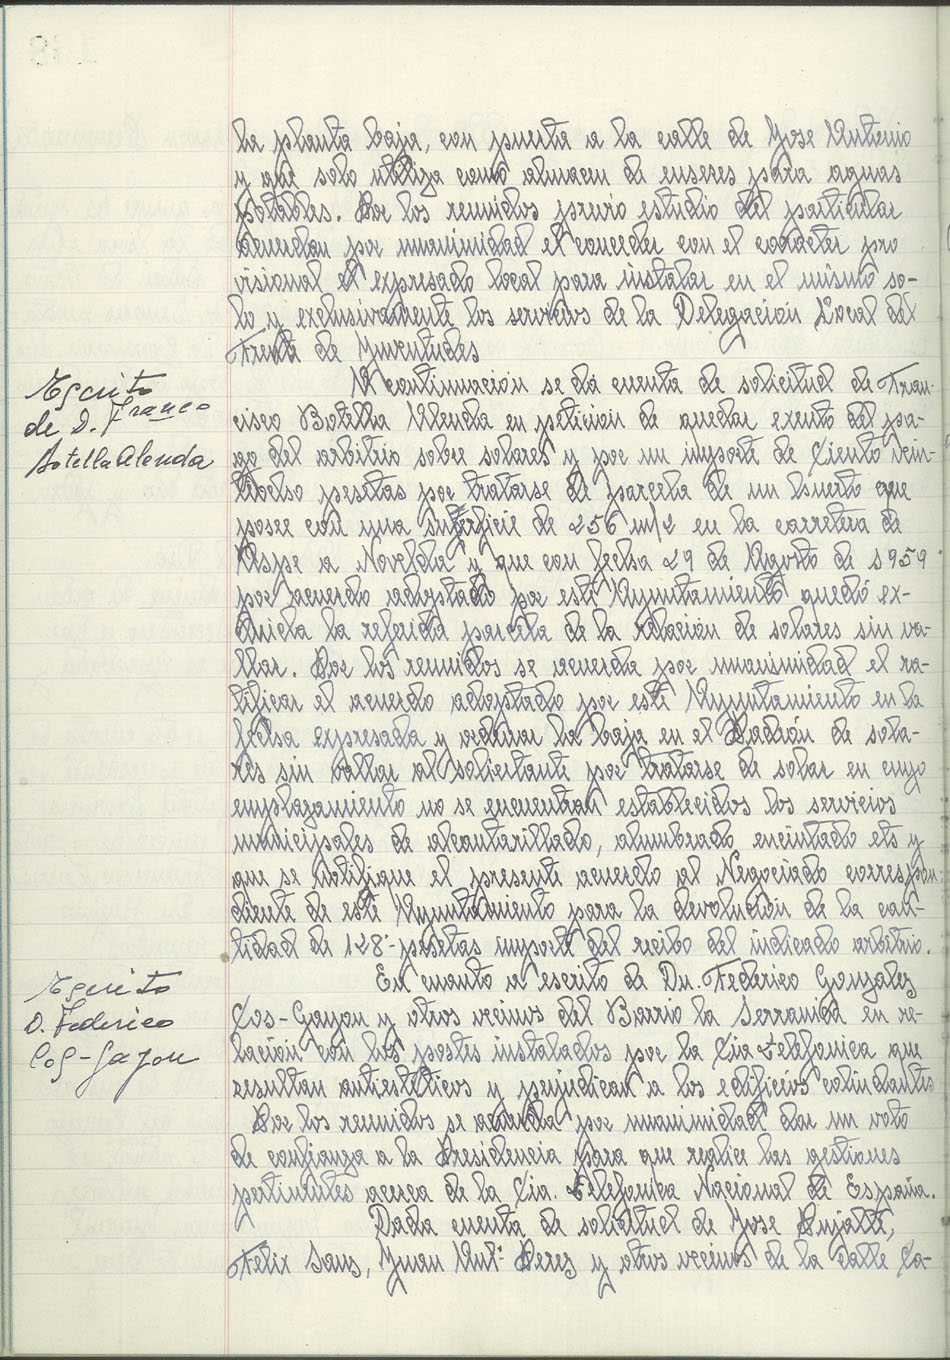 la planta baja, con puerta a la calle de Jose Antonio
y que solo utiliza como almacen de enseres para aguas
potables. Por los reunidos previo estudio del particular
acuerdan por unanimidad el conceder con el caracter pro
visional el expresado local para instalar en el mismo so-
lo y exclusivamente los servicios de la Delegación Local del
Frente de Juventudes
Escrito
de D. Franco
Botella Alenda
A continuación se dá cuenta de solicitud de Fran-
cisco Botella Alenda en peticion de quedar exento del pa-
go del arbitrio sobre solares y por un importe de Ciento vein-
tiocho pesetas por tratarse de parcela de un huerto que
posee con una superficie de 256 m/2 en la carretera de
Aspe a Novelda y que con fecha 29 de Agosto de 1959
por acuerdo adoptado por este Ayuntamiento quedó ex-
cluida la referida parcela de la relación de solares sin va-
llar. Por los reunidos se acuerda por unanimidad el ra-
tificar el acuerdo adoptado por este Ayuntamiento en la
fecha expresada y ordenar la baja en el Padrón de sola-
res sin vallar al solicitante por tratarse de solar en cuyo
emplazamiento no se encuentran establecidos los servicios
municipales de alcantarillado, alumbrado encintado ets y
que se notifique el presente acuerdo al Negociado correspon-
diente de este Ayuntamiento para la devolución de la can-
tidad de 128'- pesetas importe del recibo del indicado arbitrio.
Escrito
D. Federico
Cos-Gayon
En cuanto a escrito de Dn. Federico Gonzalez
Cos-Gayon y otros vecinos del Barrio la Serranica en re-
lación con los postes instalados por la Cia Telefonica que
resultan antiestéticos y perjudican a los edificios colindantes
Por los reunidos se acuerda por unanimidad dar un voto
de confianza a la Presidencia para que realice las gestiones
pertinentes acerca de la Cia. Telefonica Nacional de España.
Dada cuenta de solicitud de Jose Pujalte,
Felix Sans, Juan Ant: Perez y otros vecinos de la calle Ca-